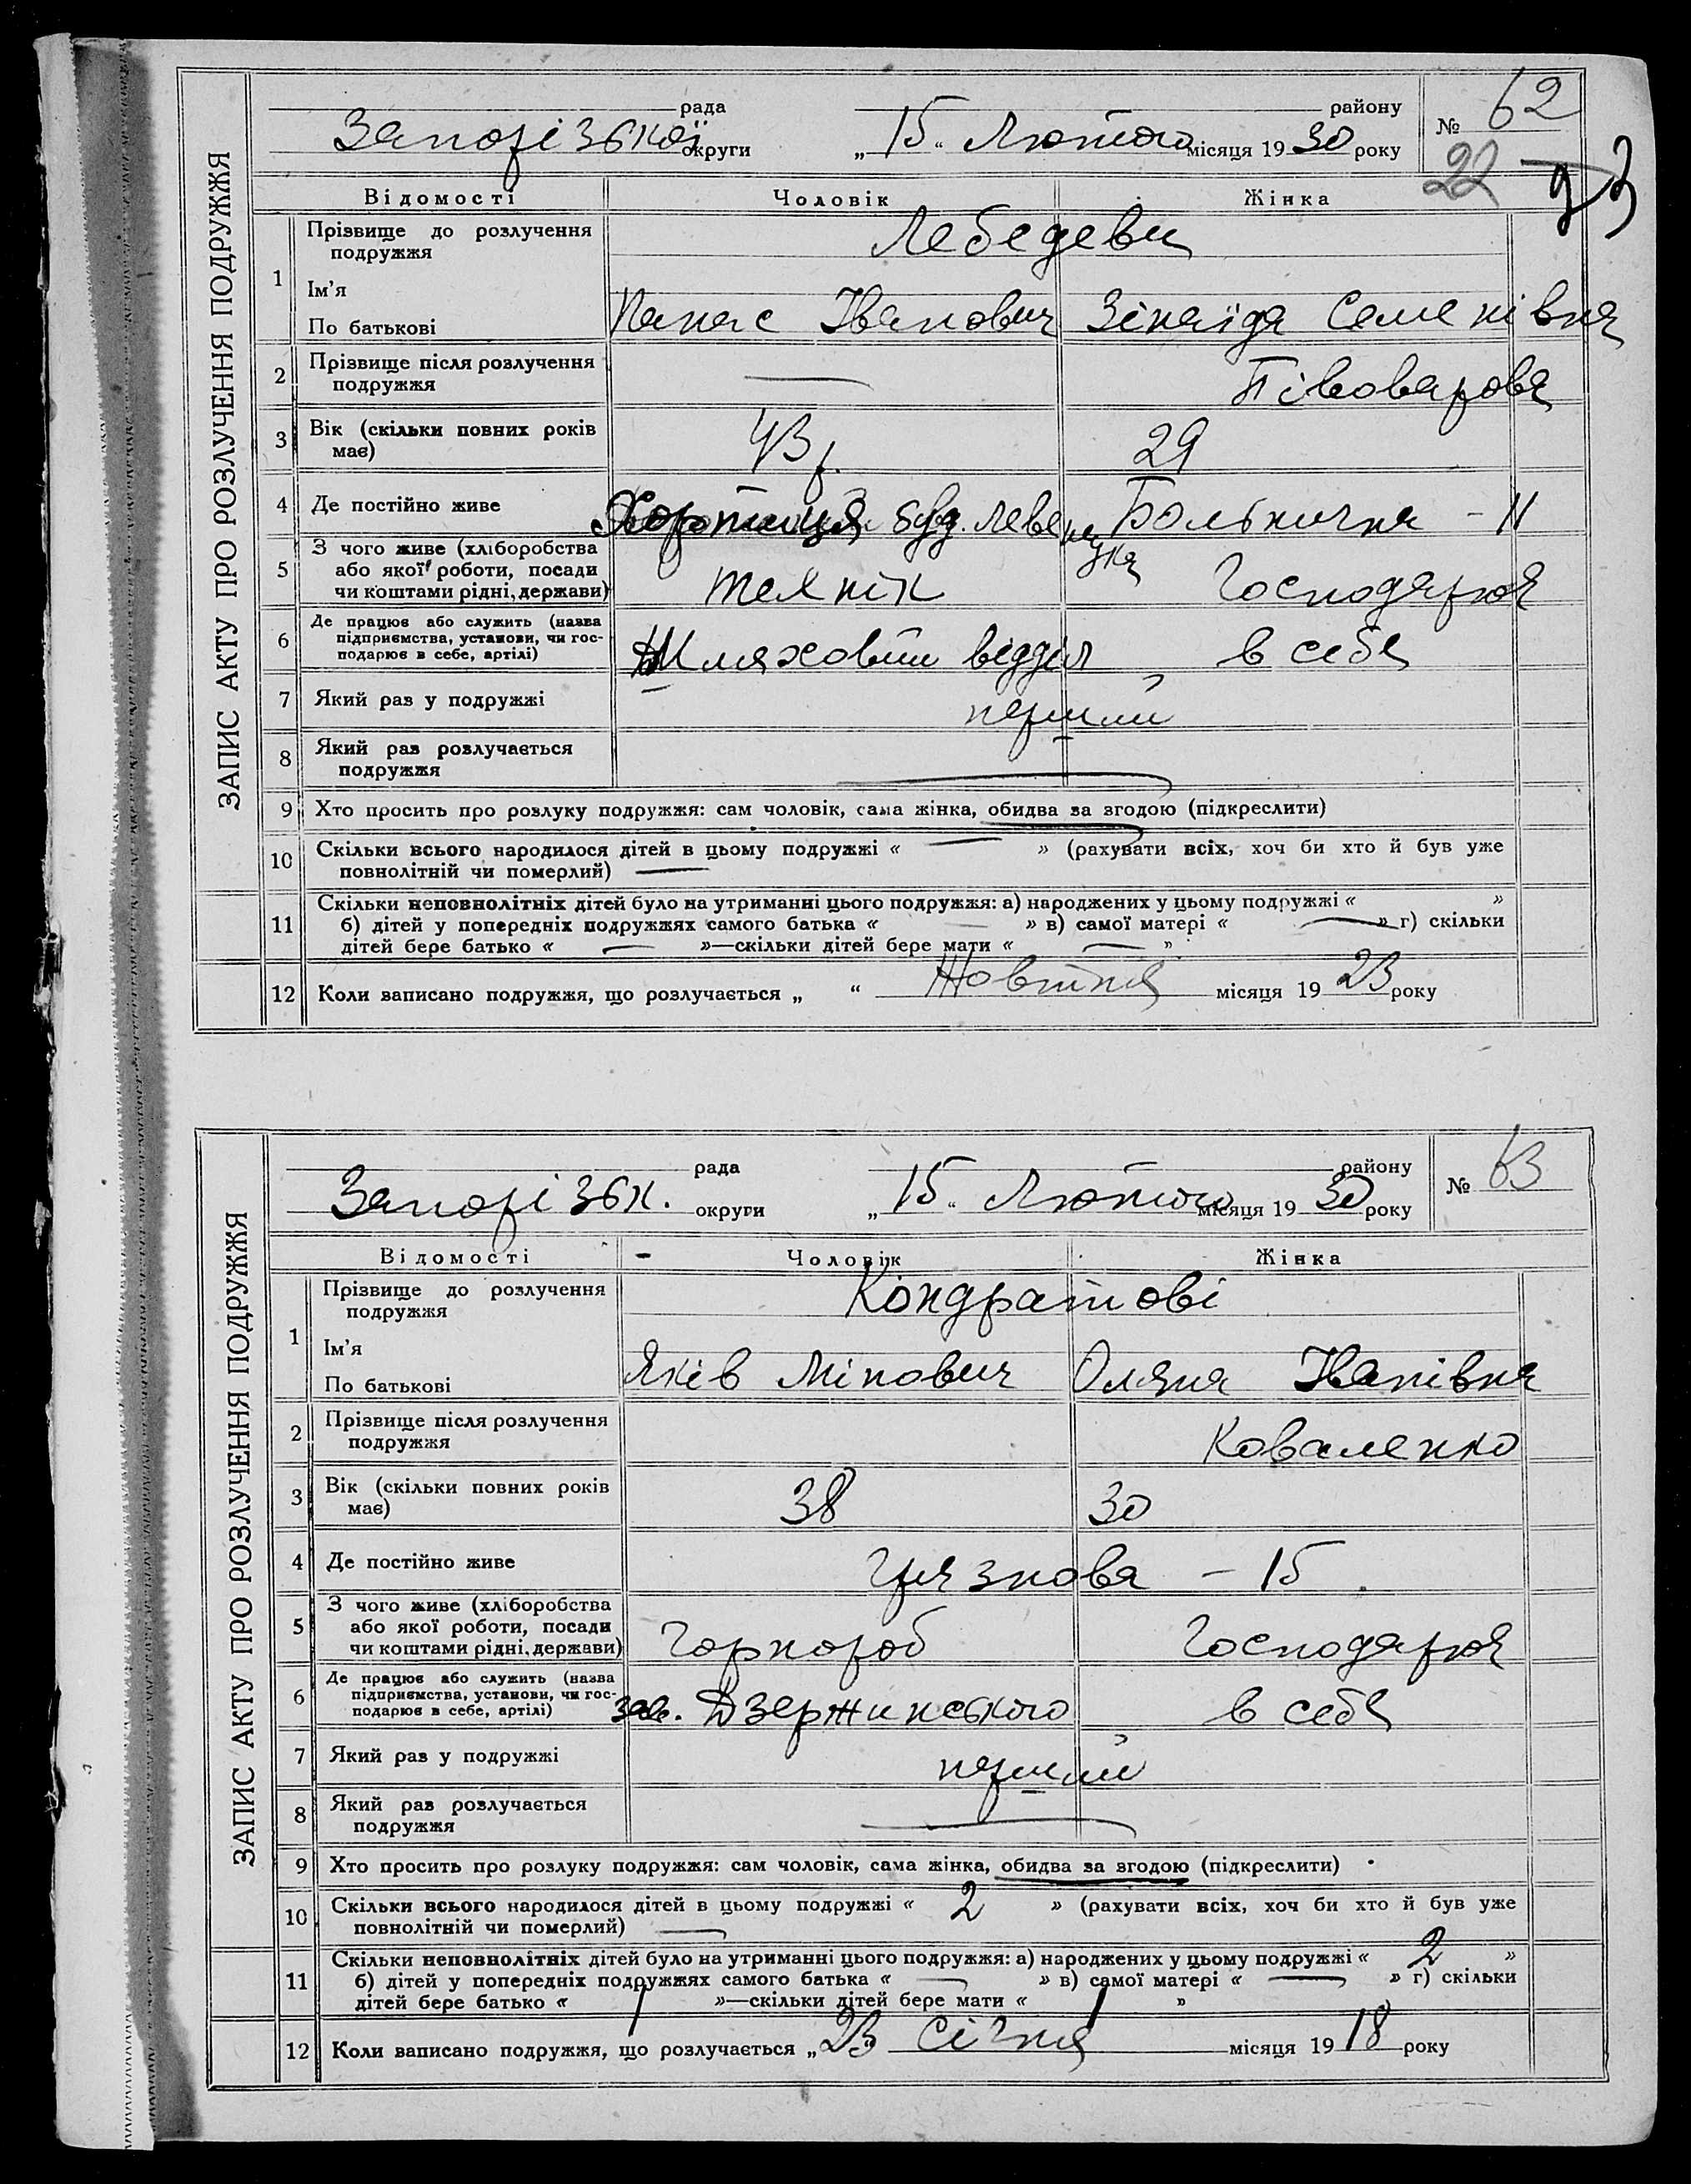 ЗАПИС АКТУ ПРО РОЗЛУЧЕННЯ ПОДРУЖЖЯ
рада района № 62
Запорізької округи „15“ Лютого місяця 1930 року
22 23
Відомості Чоловік Жінка
1 Прізвище до розлучення подружжя Лебедеви
Ім'я
По батькові Панас Іванович Зінаїда Семенівна
2 Прізвище після розлучення подружжя — Півоварова
3 Вік (скільки повних років має) 43 р. 29
4 Де постійно живе Хортиця буд. Больнична - 11
5 З чого живе (хліборобства або якої роботи, посади чи коштами рідні, держави) технік Господарює
6 Де працює або служить (назва підприємства, установи, чи господарює в себе, артілі) Шляховий відділ в себе
7 Який раз у подружжі перший
8 Який раз розлучається подружжя —
9 Хто просить про розлуку подружжя: сам чоловік, сама жінка, обидва за згодою (підкреслити)
10 Скільки всього народилося дітей в цьому подружжі « — » (рахувати всіх, хоч би хто й був уже
повнолітній чи померлий) —
11 Скільки неповнолітніх дітей було на утриманні цього подружжя: а) народжених у цьому подружжі « »
б) дітей у попередніх подружжях самого батька « — » в) самої матері « — » г) скільки
дітей бере батько « — »—скільки дітей бере мати « — »
12 Коли записано подружжя, що розлучається „ “ Жовтня місяця 1923 року
ЗАПИС АКТУ ПРО РОЗЛУЧЕННЯ ПОДРУЖЖЯ
рада району № 63
Запорізьк. округи „15“ Лютого місяця 1930 року
Відомості Чоловік Жінка
1 Прізвище до розлучення подружжя Кондратові
Ім'я
По батькові Яків Мінович Оляна Іванівна
2 Прізвище після розлучення подружжя Коваленко
3 Вік (скільки повних років має) 38 30
4 Де постійно живе Грязнова - 15
5 З чого живе (хліборобства або якої роботи, посади чи коштами рідні, держави) Чорнороб Господарює
6 Де працює або служить (назва підприємства, установи, чи господарює в себе, артілі) зав. Дзержинського в себе
7 Який раз у подружжі перший
8 Який раз розлучається подружжя —
9 Хто просить про розлуку подружжя: сам чоловік, сама жінка, обидва за згодою (підкреслити)
10 Скільки всього народилося дітей в цьому подружжі « 2 » (рахувати всіх, хоч би хто й був уже
повнолітній чи померлий) —
11 Скільки неповнолітніх дітей було на утриманні цього подружжя: а) народжених у цьому подружжі « 2 »
б) дітей у попередніх подружжях самого батька « — » в) самої матері « — » г) скільки
дітей бере батько « 1 »—скільки дітей бере мати « 1 »
12 Коли записано подружжя, що розлучається „23“ Січня місяця 1918 року